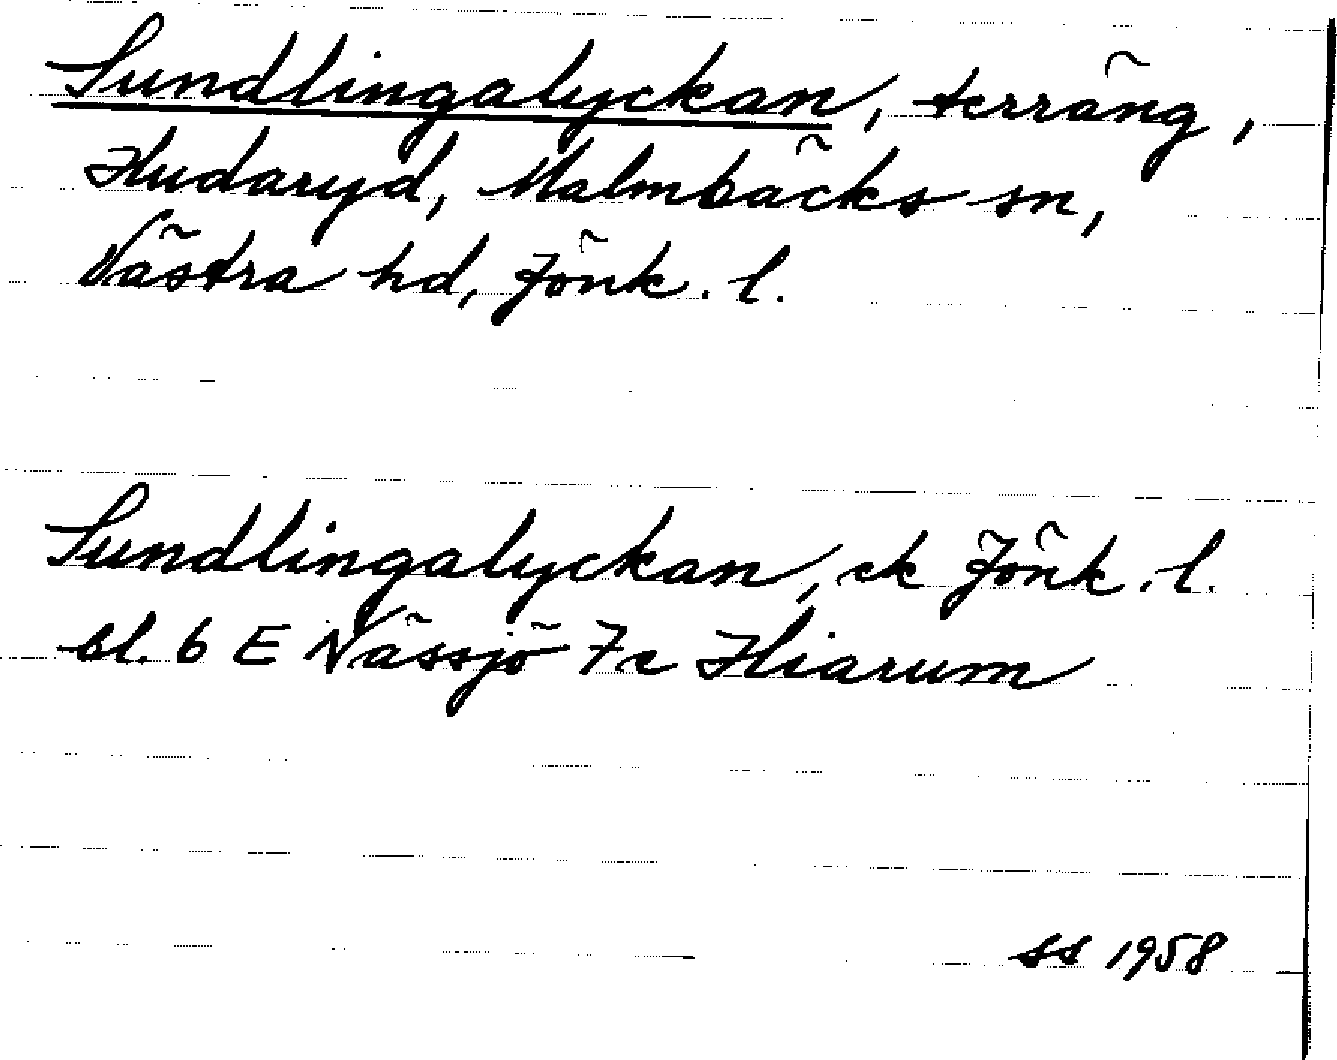 Sundlingalyckan, terräng,
Hudaryd, Malmbäcks sn,
Västra hd, Jönk. l.
Sundlingalyckan, ek Jönk. l.
bl. 6 E Nässjö 7c Hiarum
SS 1958